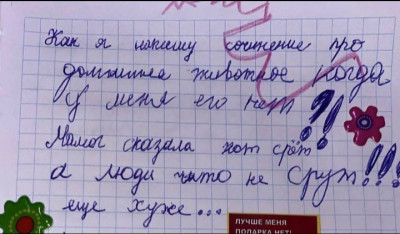 Как я напишу сочинение про
домашнеа животное когда
у меня его нет?!!
Мамог сказала кот срёт
а люди чито не срут!!!
еще хуже...
ЛУЧШЕ МЕНЯ
ПОДАРКА НЕТ!